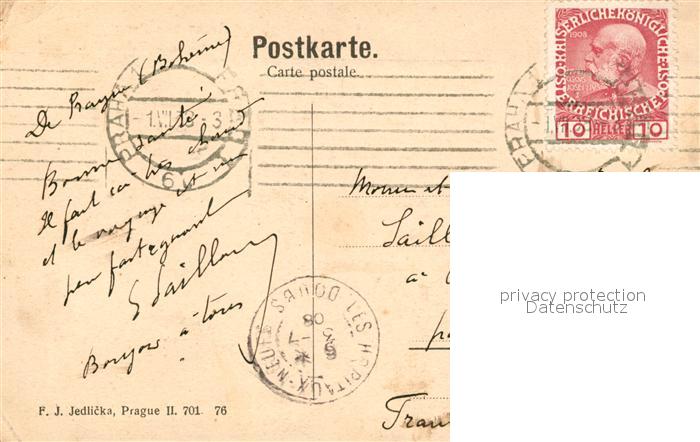 Postkarte.
Carte postale.
De Prague (Bohême)
Bonne santé
Il fait ici très chaud
et le voyage est un
peu fatiguant
Saillard
Bonjour à tous
PRAHA
1908
KAISERLICHE KÖNIGLICHE
ÖSTERREICHISCHE
10 HELLER 10
Saill
Fran
LES HOPITAUX-NEUFS
DOUBS
privacy protection
Datenschutz
F. J. Jedlička, Prague II. 701 76